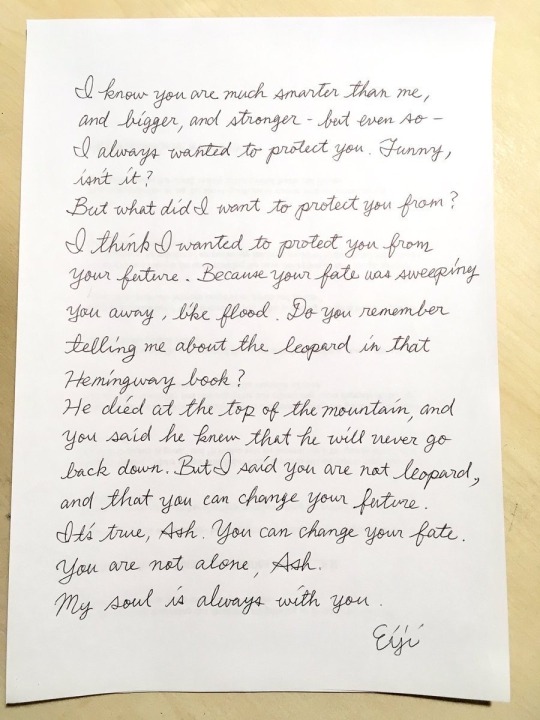 I know you are much smarter than me,
and bigger, and stronger - but even so -
I always wanted to protect you. Funny,
isn't it?
But what did I want to protect you from?
I think I wanted to protect you from
your future. Because your fate was sweeping
you away, like flood. Do you remember
telling me about the leopard in that
Hemingway book?
He died at the top of the mountain, and
you said he knew that he will never go
back down. But I said you are not leopard,
and that you can change your future.
It's true, Ash. You can change your fate.
You are not alone, Ash.
My soul is always with you.
Eiji